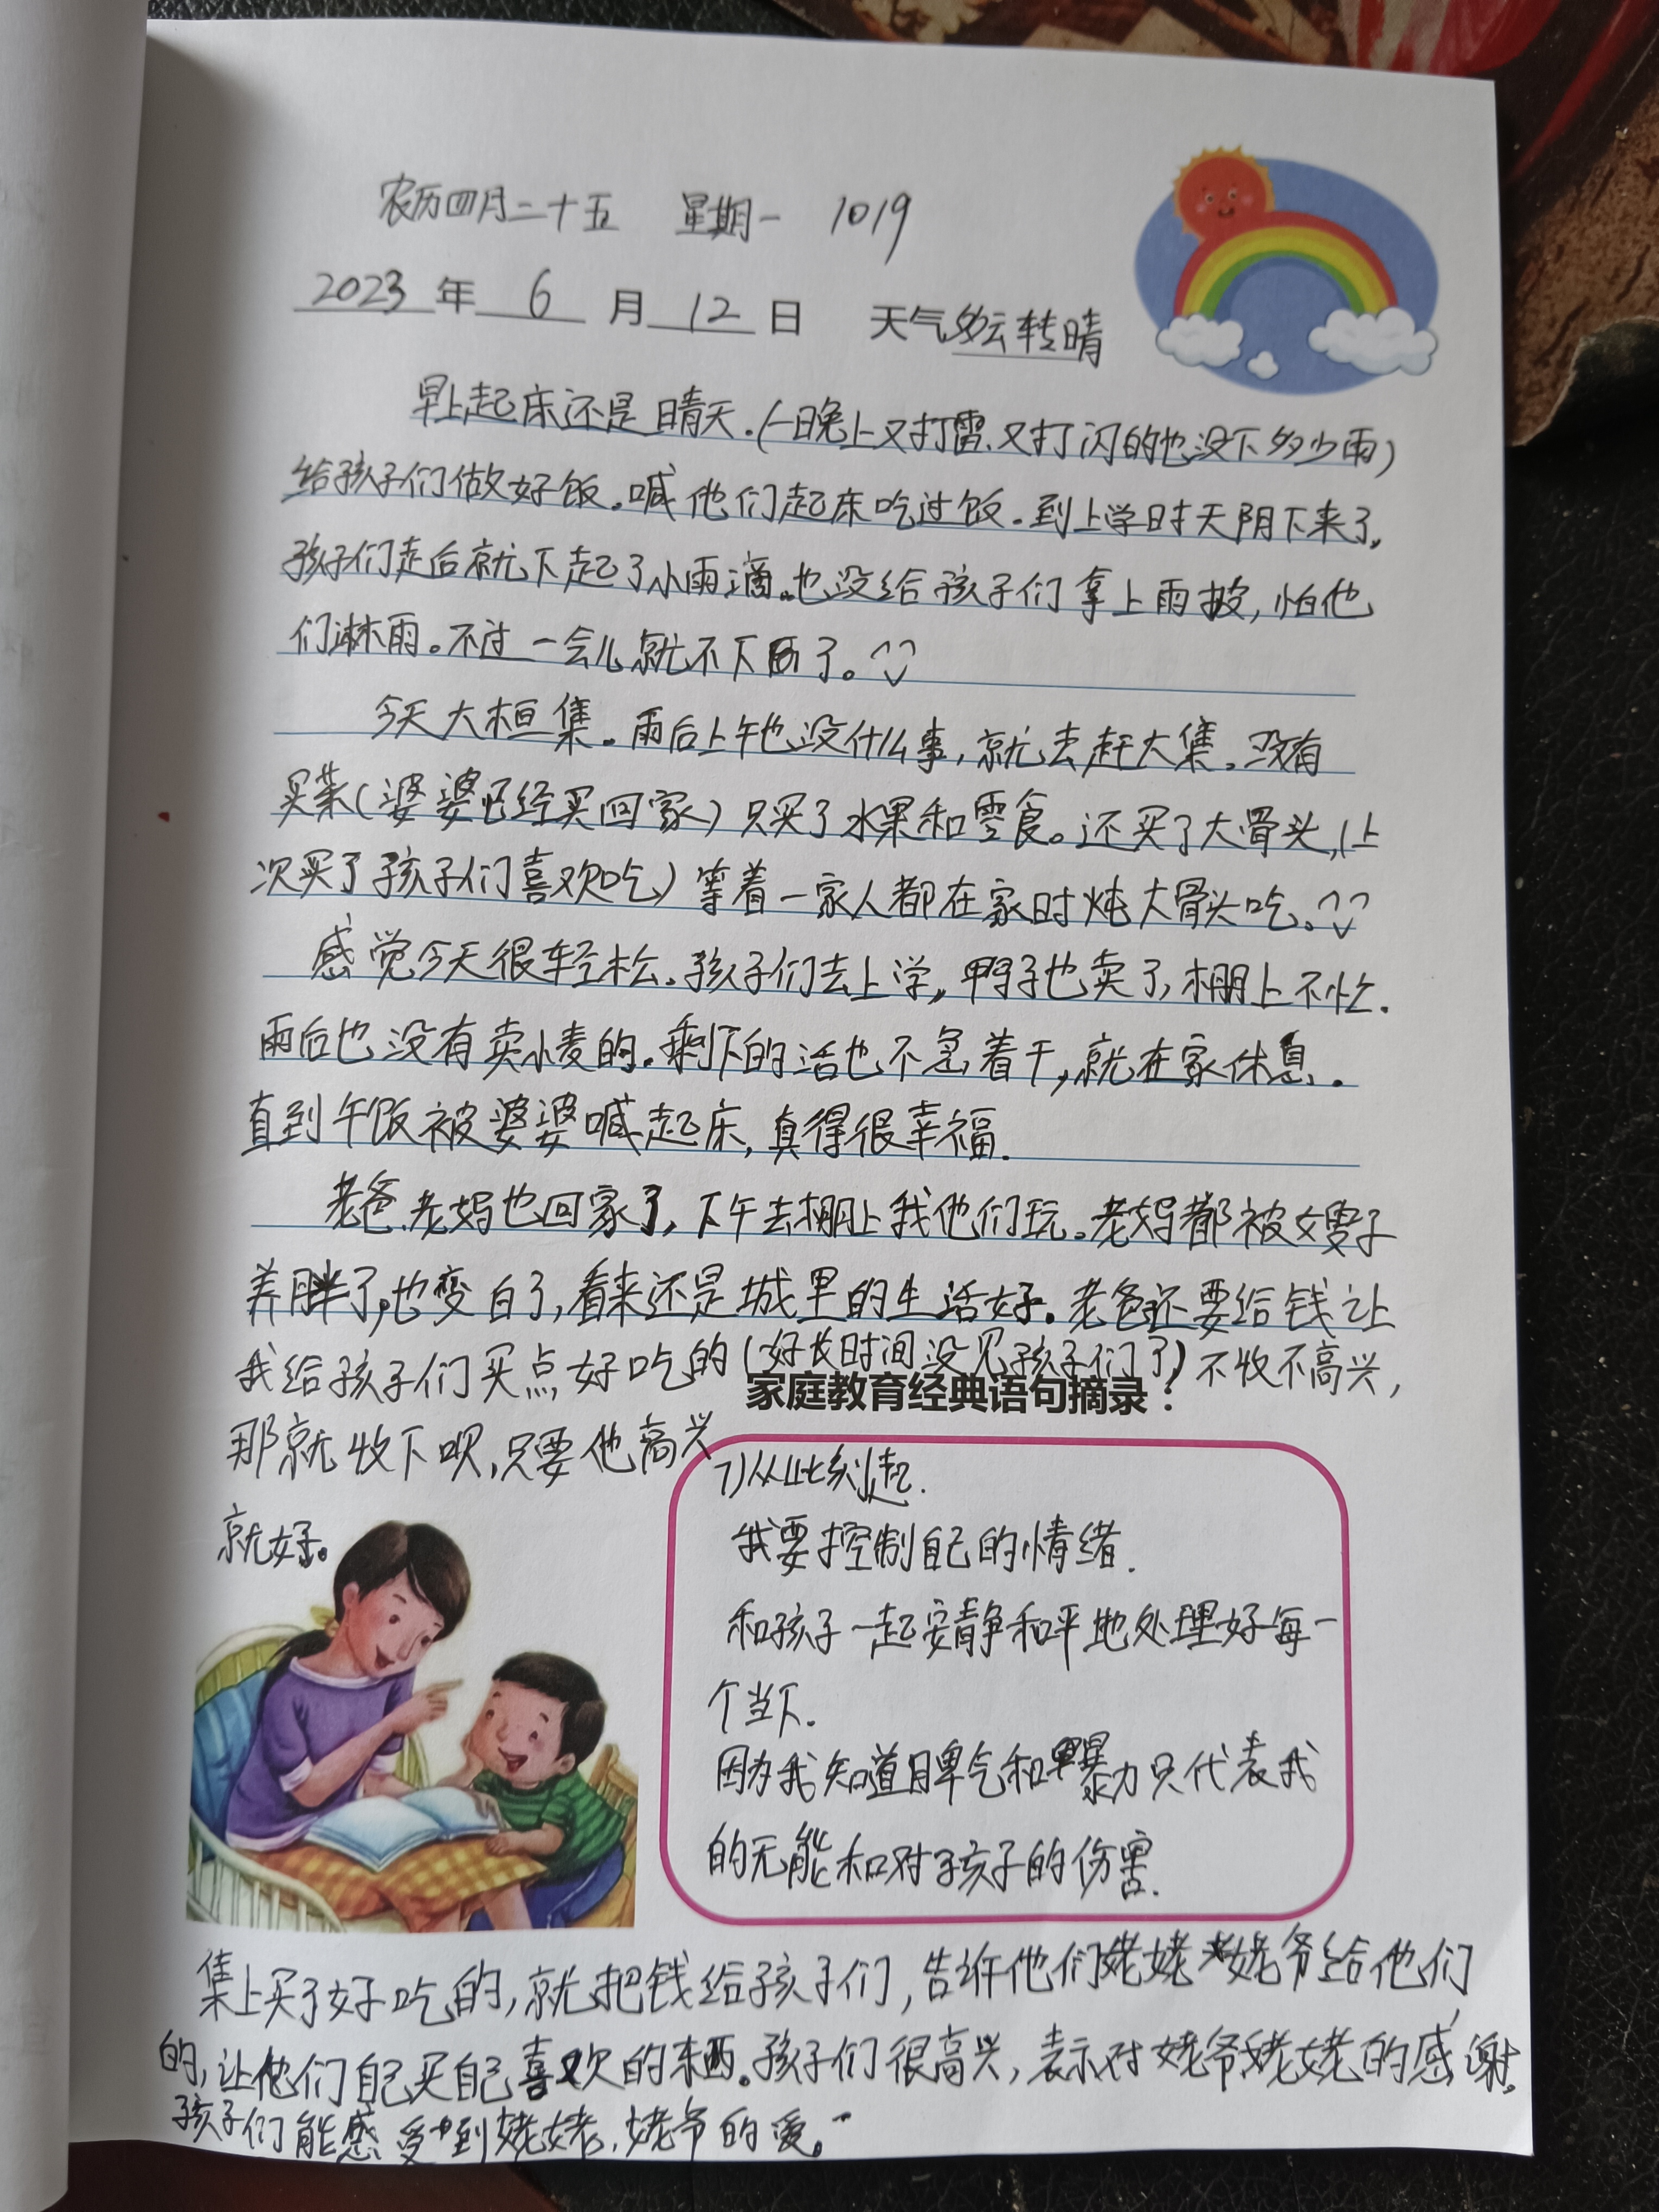 农历四月二十五 星期一 1019
2023年 6 月 12 日 天气多云转晴
早上起床还是晴天.(一晚上又打雷.又打闪的也没下多少雨)
给孩子们做好饭。喊他们起床吃过饭.到上学时天阴下来了,
孩子们走后就下起了小雨滴。也没给孩子们拿上雨披,怕他
们淋雨。不过一会儿就不下雨了。
今天大桓集。雨后上午也没什么事,就去赶大集。没有
买菜(婆婆已经买回家)只买了水果和零食。还买了大骨头,(上
次买了孩子们喜欢吃)等着一家人都在家时炖大骨头吃。
感觉今天很轻松.孩子们去上学,鸭子也卖了,棚上不忙.
雨后也没有卖小麦的.剩下的活也不急着干,就在家休息.
直到午饭被婆婆喊起床,真得很幸福.
老爸.老妈也回家了,下午去棚上找他们玩。老妈都被嫂子
养胖了,也变白了,看来还是城里的生活好。老爸还要给钱让
我给孩子们买点好吃的(好长时间没见孩子们了)不收不高兴,
那就收下呗,只要他高兴
就好。
家庭教育经典语句摘录：
7)从此刻起.
我要控制自己的情绪.
和孩子一起安静和平地处理好每一
个当下.
因为我知道脾气和暴力只代表我
的无能和对孩子的伤害.
集上买了好吃的,就把钱给孩子们,告许他们姥姥姥爷给他们
的,让他们自己买自己喜欢的东西。孩子们很高兴,表示对姥爷姥姥的感谢,
孩子们能感受到姥姥,姥爷的爱。